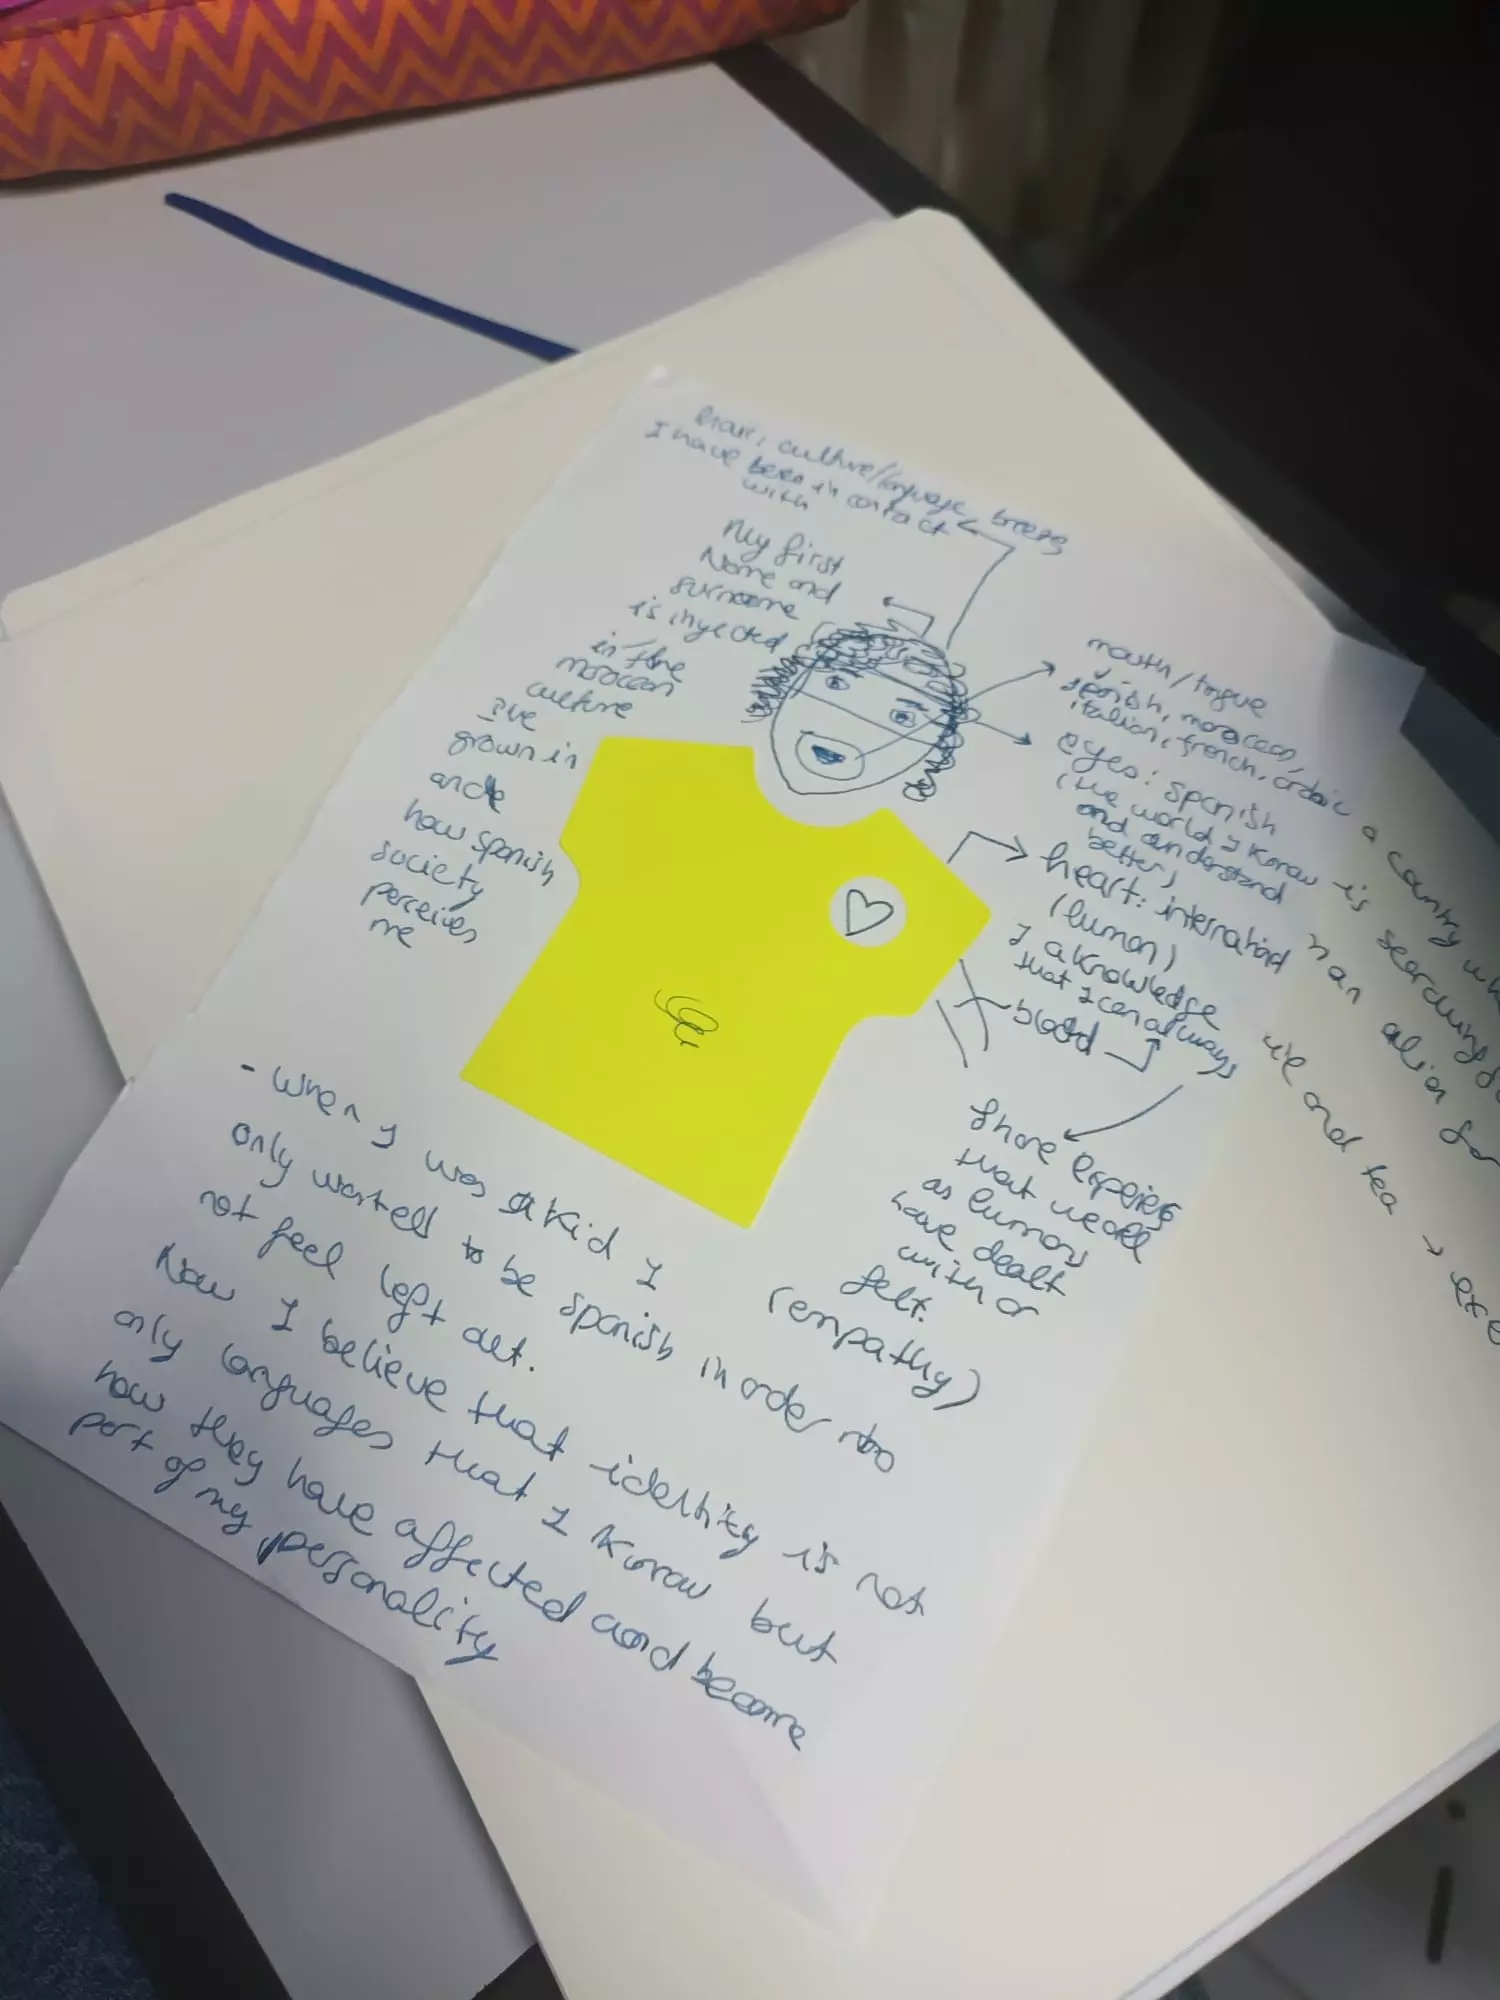 culture/language
I have been in contact
with
My first
Name and
surname
is inyected
in the
moroccan
culture
i've
grown in
and
how spanish
society
perceives
me
mouth/tongue
spanish, moroccan,
italian, french, arabic
eyes: spanish
(the world I know
and understand
better)
heart: international
(human)
I aknowledge
that I can always
blood
share
that we all
as humans
have dealt
with or
felt.
(empathy)
- when I was a kid I
only wanted to be spanish in order to
not feel left out.
Now I believe that identity is not
only languages that I know but
how they have affected and become
part of my personality
a country
is searching
an alien for
and tea →